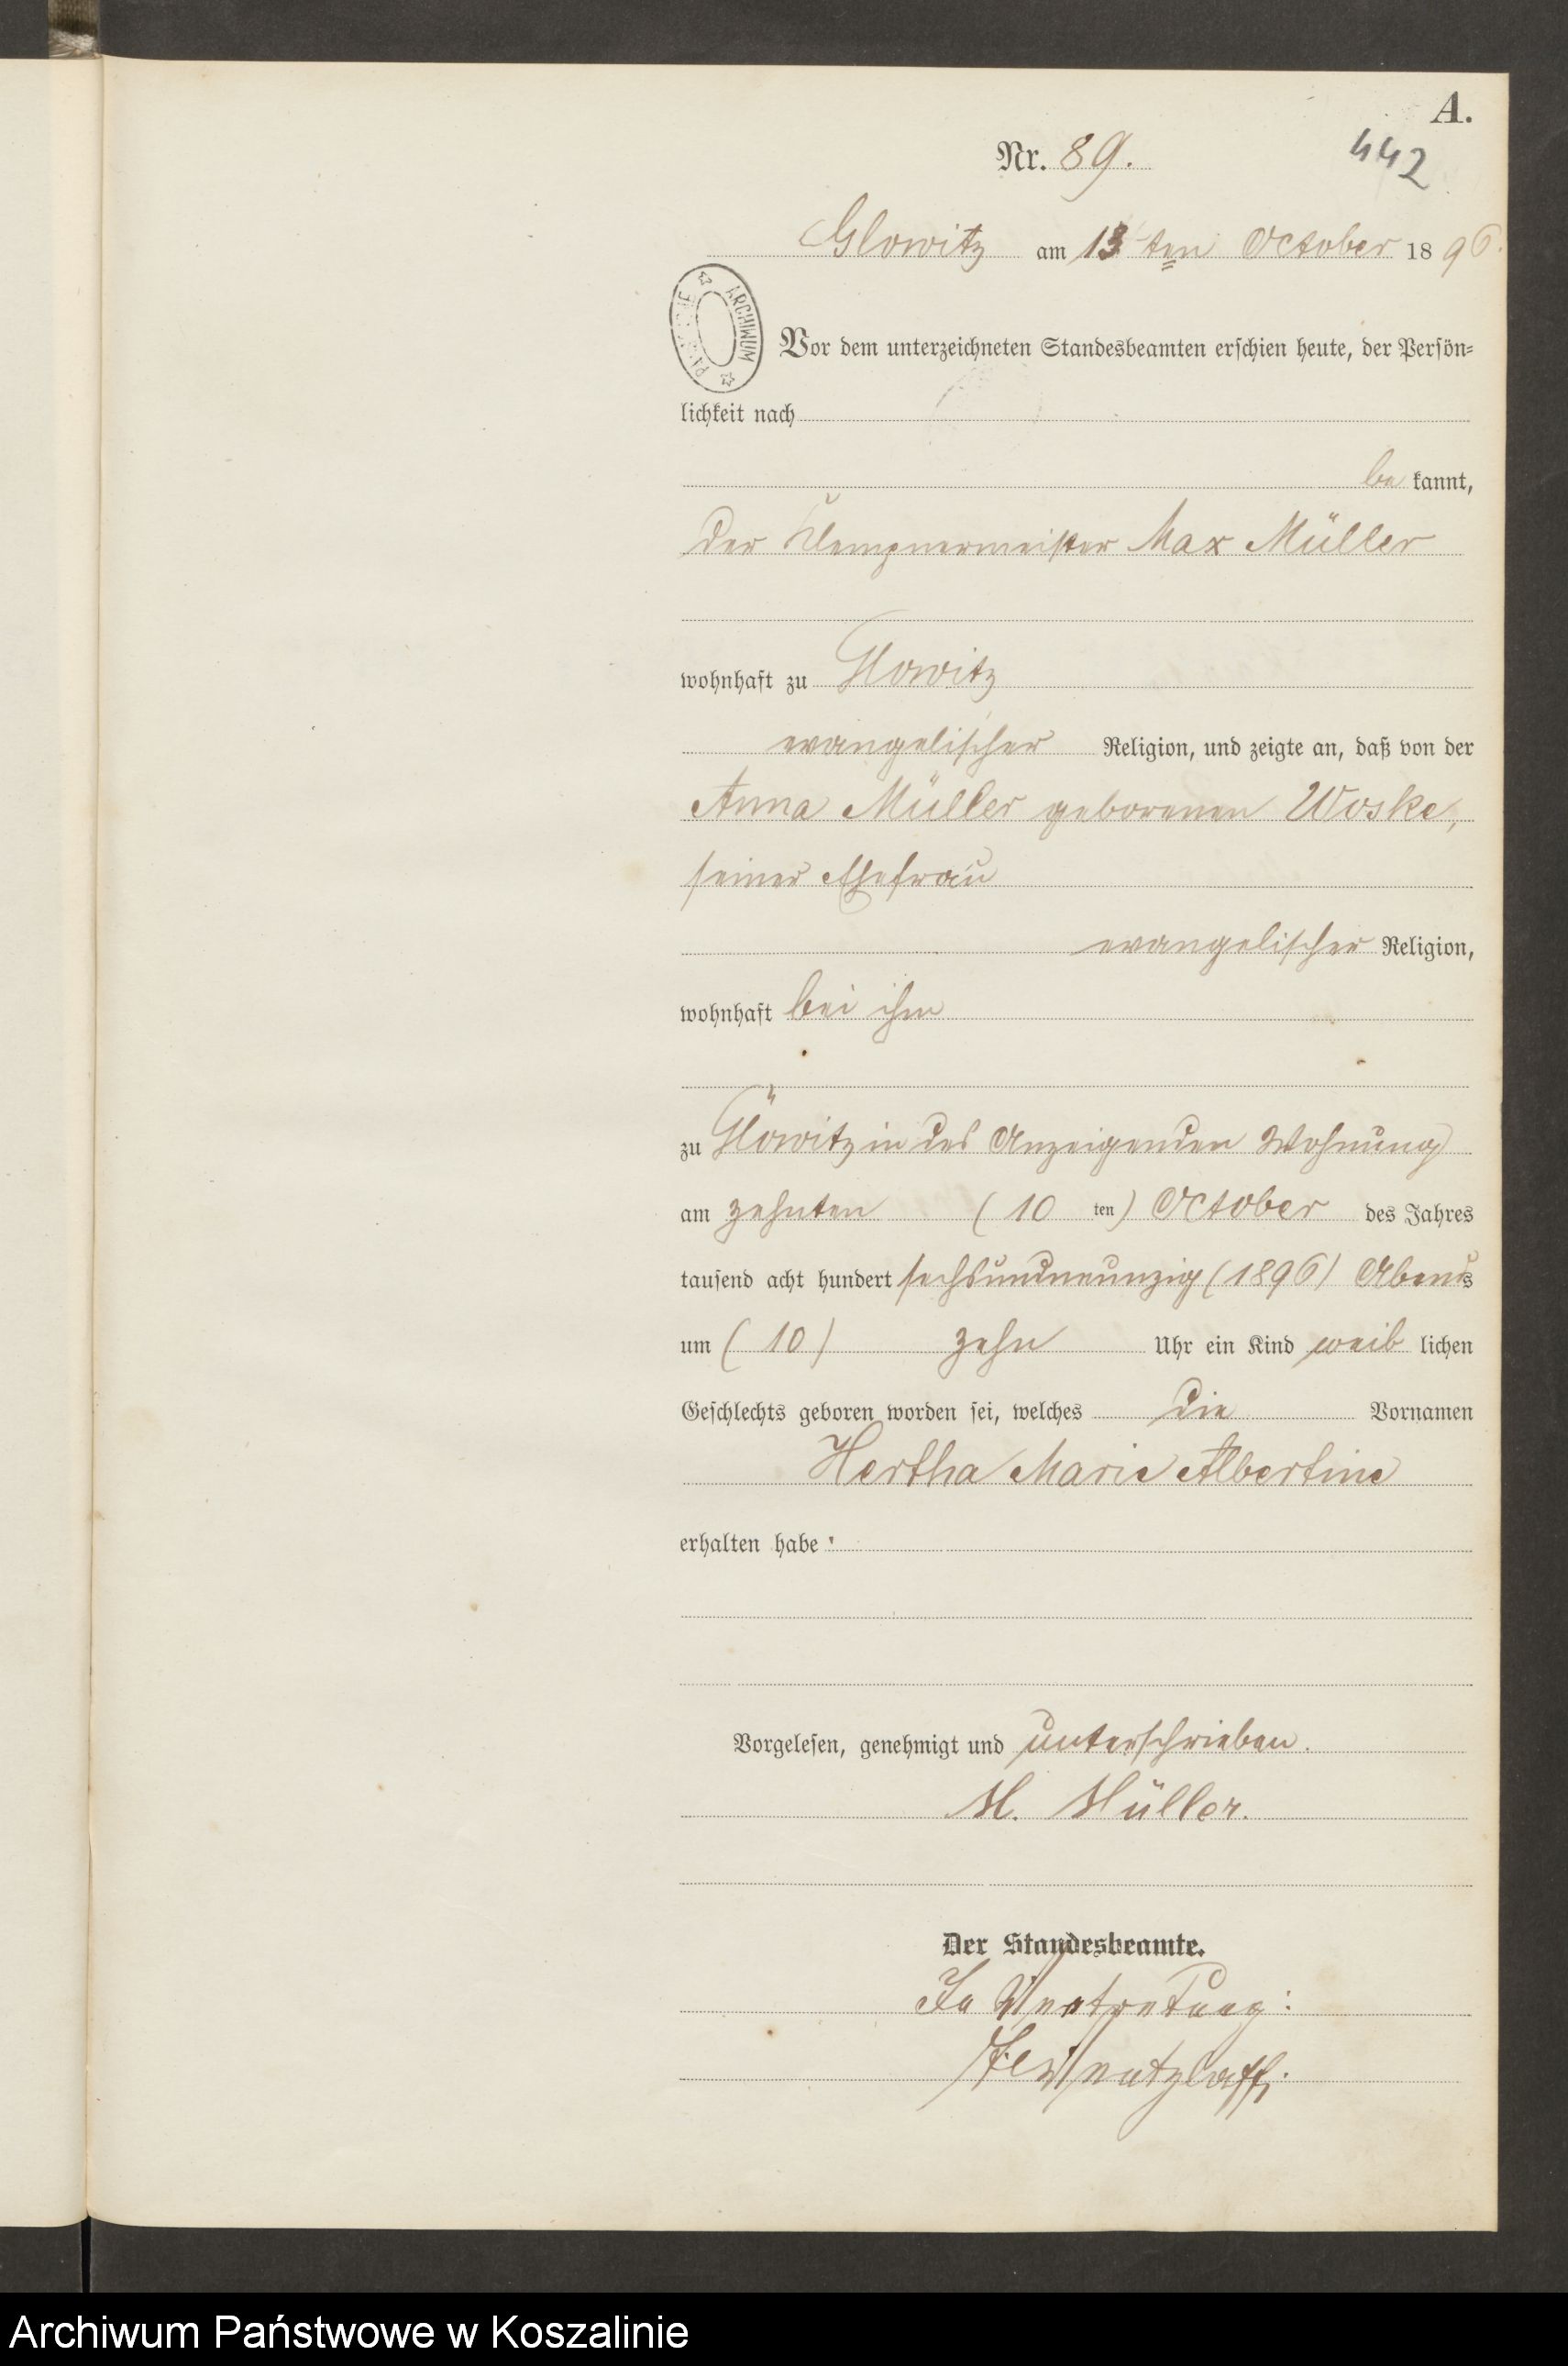 A.
Nr. 89.
442
Glowitz am 13ten October 1896.
ARCHIWUM
Vor dem unterzeichneten Standesbeamten erschien heute, der Persön-
lichkeit nach
be kannt,
der Klempnermeister Max Müller
wohnhaft zu Glowitz
evangelischer Religion, und zeigte an, daß von der
Anna Müller geborenen Woske,
seiner Ehefrau
evangelischer Religion,
wohnhaft bei ihm
zu Glowitz in des Anzeigenden Wohnung
am zehnten (10 ten) October des Jahres
tausend acht hundert sechsundneunzig (1896) Abends
um (10) zehn Uhr ein Kind weib lichen
Geschlechts geboren worden sei, welches die Vornamen
Hertha Marie Albertine
erhalten habe.
Vorgelesen, genehmigt und unterschrieben.
M. Müller.
Der Standesbeamte.
In Vertretung:
Archiwum Państwowe w Koszalinie